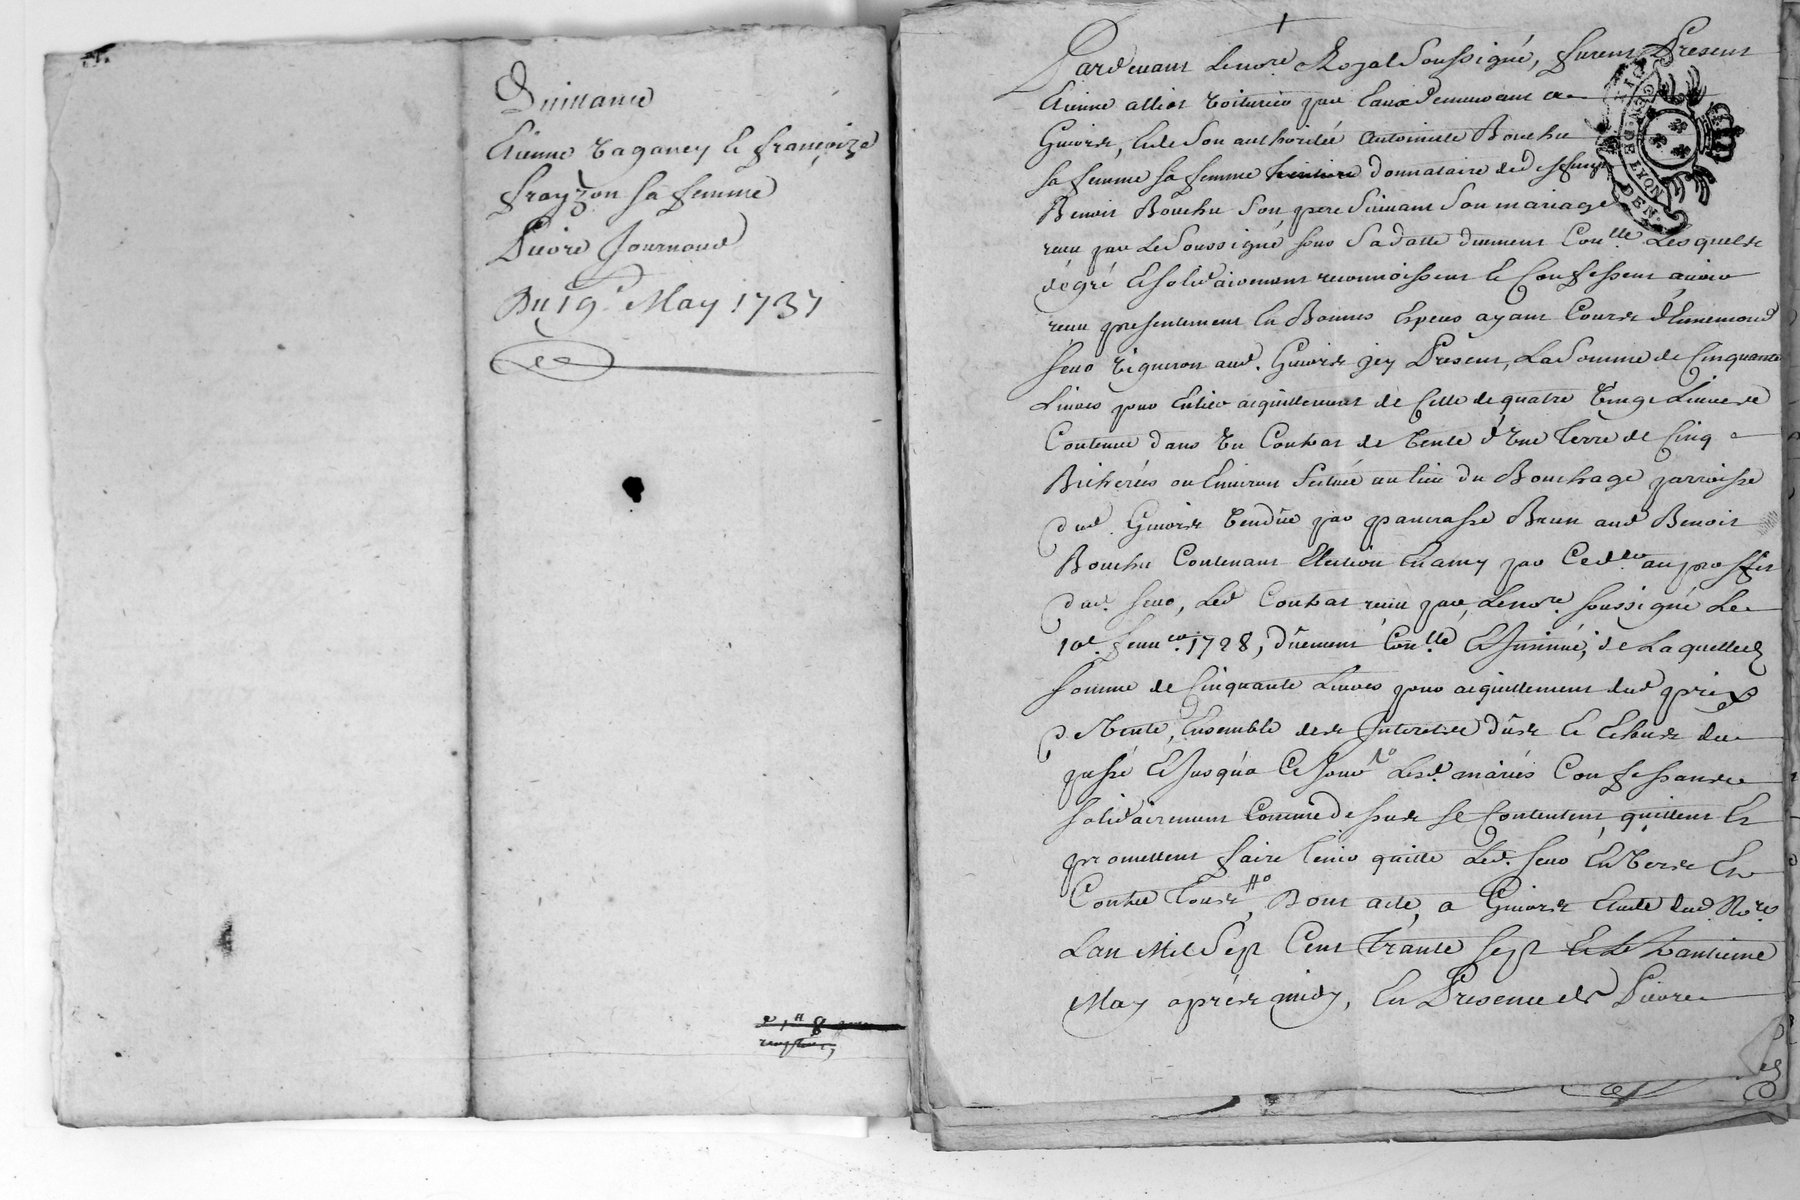 Quittance
Etienne Taganey Et françoize
frayzon sa femme
Pierre Journoud
Du 19e. May 1737
Pardevant Le nore. Royal Soussigné, furent Présent
Etienne alliot voiturier par Eau demeurant a
Givors, Et de Son authoritée Antoinette Bouchu
sa femme sa femme donnataire de
Benoit Bouchu Son pere Suivant Son mariage
receu par Le Soussigné sous Sa datte duement Conllé Lesquels
dégré Et solidairement reconnoissent Et Confessent avoir
receu presentement En Bonnes Especes ayant Cours d'Ennemond
vigneron aud. Givors icy Présent, La Somme de Cinquante
Livres pour Entier acquittement de Celle de quatre vingt Livres
Contenue dans Un Contrat de Vente d'Une Terre de Cinq
Bicherées ou Environ Scituée au lieu du Bouchage parroisse
dud. Givors vendüe par pancrasse Brun aud Benoit
Bouchu Contenant Election En amy par Ced. der au proffit
dud. Led Contrat receu par Le nore. soussigné Le
1728, düement Conllé Et Insinué, de Laquelle
somme de Cinquante Livres pour acquittement dud prix
de Vente, Ensemble des Interets dûs Et Echus du
passé Et Jusqu'a Ce Jour Lesd. mariés Confessants
solidairement Comme dessus se Contentent, quittent Et
promettent faire tenir quitte Led. Envers Et
Contre Tous, Dont acte, a Givors Etude dud. Nore.
Lan Mil Sept Cent Trante Sept
May aprés midy, En Presence de Pierre